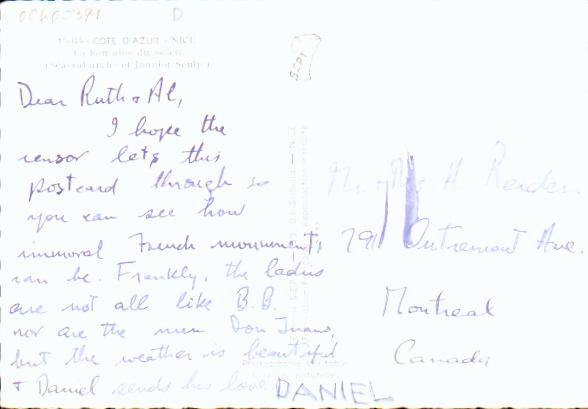 00600391 D
COTE D'AZUR - NICE
La Fontaine du Soleil
(Seassal arch. et Janniot Sculp.)
SEPT
Dear Ruth & Al,
I hope the
censor lets this
postcard through so
you can see how
immoral French monuments
can be. Frankly, the ladies
are not all like B.B.
nor are the men Don Juans,
but the weather is beautiful
& Daniel sends his love DANIEL
H
791 Outremont Ave.
Montreal
Canada